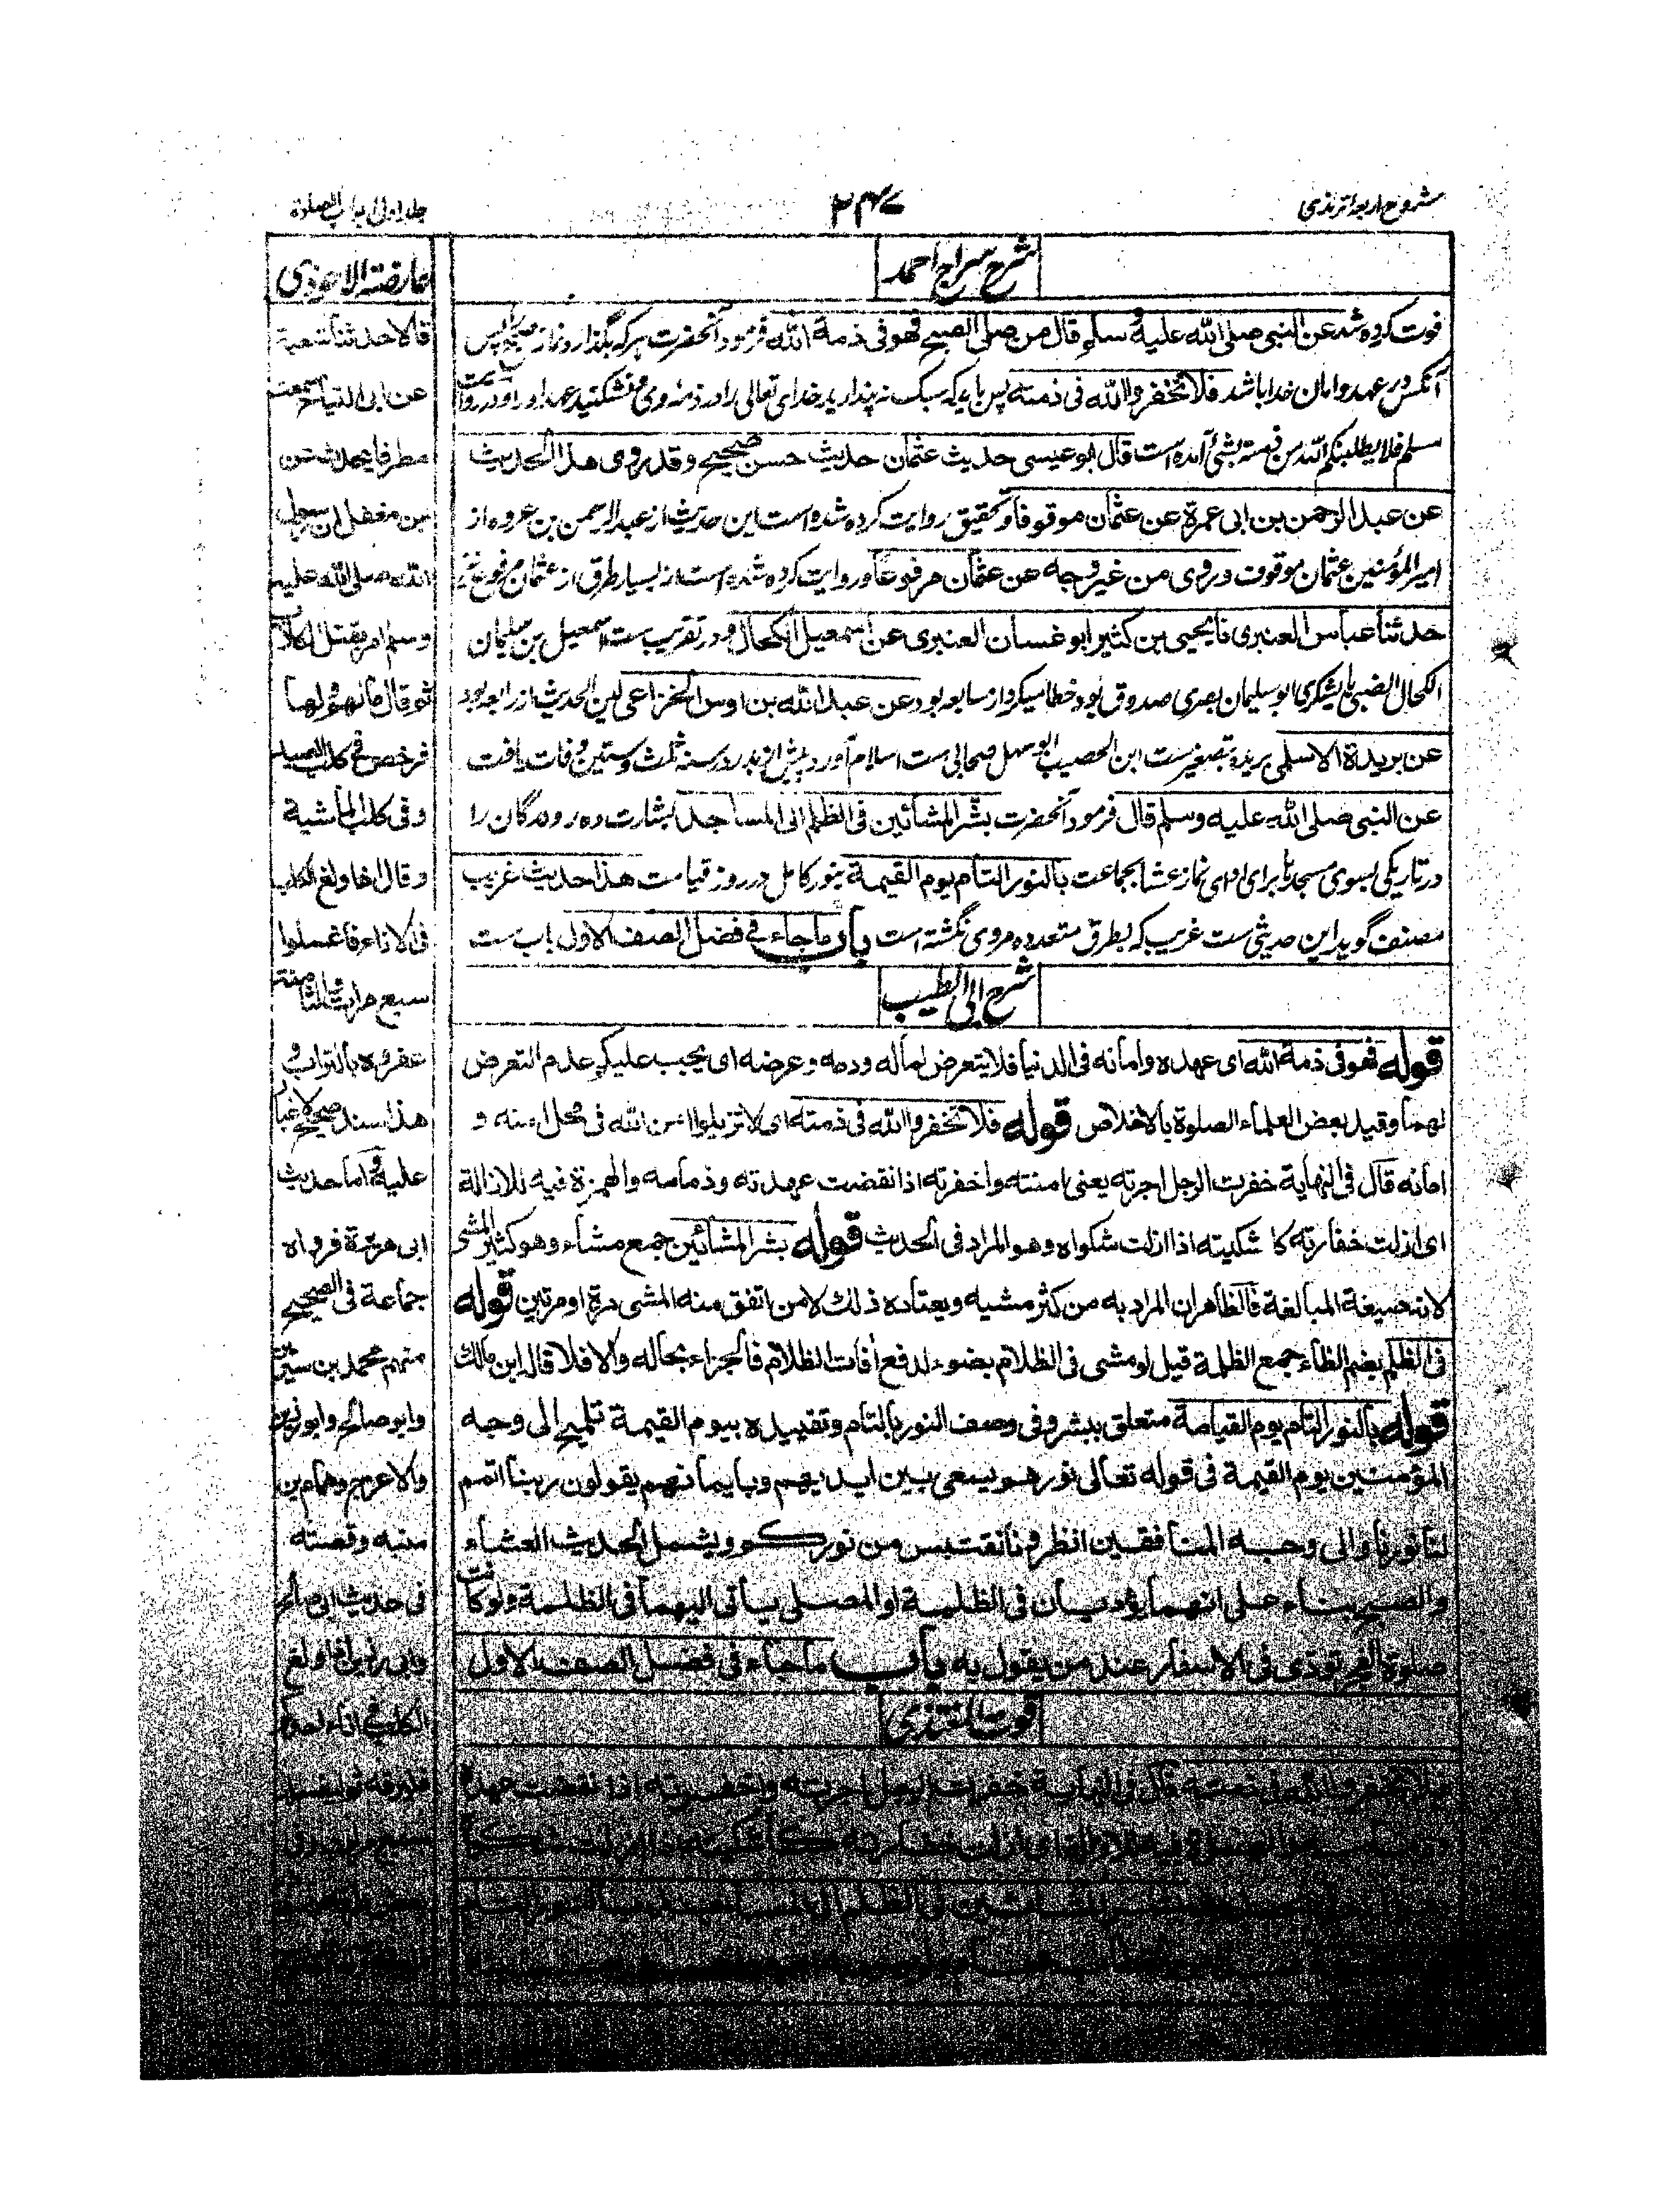 شروح اربعه ترمذی
۲۴۷
جلد اول باب الصلوة
شرح سراج احمد
فوت کرده شد عن النبی صلی الله علیه وسلم قال من صلی الصبح فهو فی ذمة الله فرمود آنحضرت هر که بگذارد نماز صبح پس
آنکس در عهد و امان خدا باشد فلا تخفروا الله فی ذمته پس باید که سبک نه پندارید خدای تعالی را در ذمه وی و نشکنید عهد او را و در روایت
مسلم فلا یطلبنکم الله من ذمته بشئ آمده است قال ابو عیسی حدیث عثمان حدیث حسن صحیح وقد روی هذا الحدیث
عن عبد الرحمن بن ابی عمرة عن عثمان موقوفا و تحقیق روایت کرده شده است این حدیث از عبد الرحمن بن عروه از
امیر المؤمنین عثمان موقوف وروی من غیر وجه عن عثمان مرفوعا و روایت کرده شده است از بسیار طرق از عثمان مرفوع نیز
حدثنا عباس العنبری نا یحیی بن کثیر ابو غسان العنبری عن اسمعیل الکحال و در تقریب ست اسمعیل بن سلیمان
الکحال الضبی یا الیشکری ابو سلیمان بصری صدوق بود خطا میکرد از سابعه بود عن عبد الله بن اوس الخزاعی لین الحدیث از رابعه بود
عن بریدة الاسلمی بریده بتصغیر ست ابن الحصیب ابو سهل صحابی ست اسلام آورد پیش از بدر در سنه ثلث وستین وفات یافت
عن النبی صلی الله علیه وسلم قال فرمود آنحضرت بشر المشائین فی الظلم الی المساجد بشارت ده روندگان را
در تاریکی بسوی مسجدها برای ادای نماز عشا بجماعت بالنور التام یوم القیمة بنور کامل در روز قیامت هذا حدیث غریب
مصنف گوید این حدیثی ست غریب که بطرق متعدده مروی نگشته است باب ما جاء فی فضل الصف الاول باب ست
شرح ابی الطیب
قوله فهو فی ذمة الله ای عهده وامانه فی الدنیا فلا یتعرض لماله ودمه وعرضه ای یجب علیکم عدم التعرض
لهما وقید بعض العلماء الصلوة بالاخلاص قوله فلا تخفروا الله فی ذمته ای لا تزیلوا امن الله فی محل امنه و
امانه قال فی النهایة خفرت الرجل اجرته یعنی امنته واخفرته اذا نقضت عهدته وذمامه والهمزة فیه للازالة
ای ازلت خفارته کا شکیته اذا ازلت شکواه وهو المراد فی الحدیث قوله بشر المشائین جمع مشاء وهو کثیر المشی
لانه صیغة المبالغة فالظاهر ان المراد به من کثر مشیه ویعتاده ذلک لا من اتفق منه المشی مرة او مرتین قوله
فی الظلم بضم الظاء جمع الظلمة قیل لو مشی فی الظلام بضوء لدفع آفات الظلام فالجزاء بحاله والا فلا قاله ابن مالک
قوله بالنور التام یوم القیامة متعلق ببشر وفی وصف النور بالتام وتقییده بیوم القیمة تلمیح الی وجه
المؤمنین یوم القیمة فی قوله تعالی نورهم یسعی بین ایدیهم وبایمانهم یقولون ربنا اتمم
لنا نورنا والی وجه المنافقین انظرونا نقتبس من نورکم ویشمل الحدیث العشاء
والصبح بناء علی انهما یؤدیان فی الظلمة او المصلی یأتی الیهما فی الظلمة ولو کانت
صلوة الفجر تؤدی فی الاسفار عند من یقول به باب ما جاء فی فضل الصف الاول
قوت المغتذی
فلا تخفروا الله فی ذمته قال فی النهایة خفرت الرجل اجرته واخفرته اذا نقضت عهده
عارضة الاحوذی
قالا حدثنا شعبة
عن ابی التیاح سمعت
مطرفا یحدث عن
بن مغفل ان رسول
الله صلی الله علیه
وسلم امر بقتل الکلاب
ثم قال ما لهم ولها
فرخص فی کلب الصید
وفی کلب الماشیة
وقال اذا ولغ الکلب
فی الاناء فاغسلوا
سبع مرات والثامنة
عفروه بالتراب و
هذا سند صحیح لا غبار
علیه واما حدیث
ابی هریرة فرواه
جماعة فی الصحیح
منهم محمد بن سیرین
وابو صالح وابو رزین
والاعرج وهمام بن
منبه وقصته
فی حدیث ابی صالح
وابی رزین اذا ولغ
الکلب فی اناء احدکم
فلیرقه ثم لیغسله